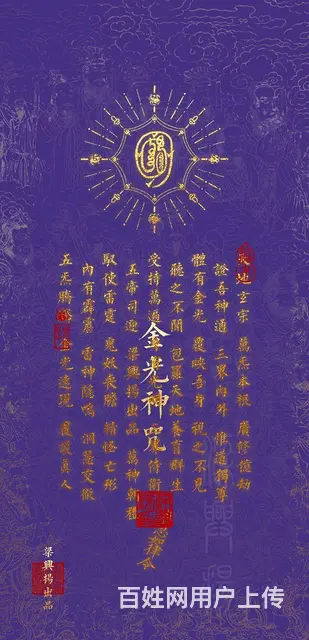 天地玄宗 萬炁本根 廣修億劫
證吾神通 三界內外 惟道獨尊
體有金光 覆映吾身 視之不見
聽之不聞 包羅天地 養育群生
受持萬遍 金光神咒 侍衛
五帝司迎 梁興揚出品 萬神朝禮
馭使雷霆 鬼妖喪膽 精怪亡形
內有霹靂 雷神隱鳴 洞慧交徹
五炁騰騰 金光速現 覆護真人
梁興揚出品
百姓网用户上传